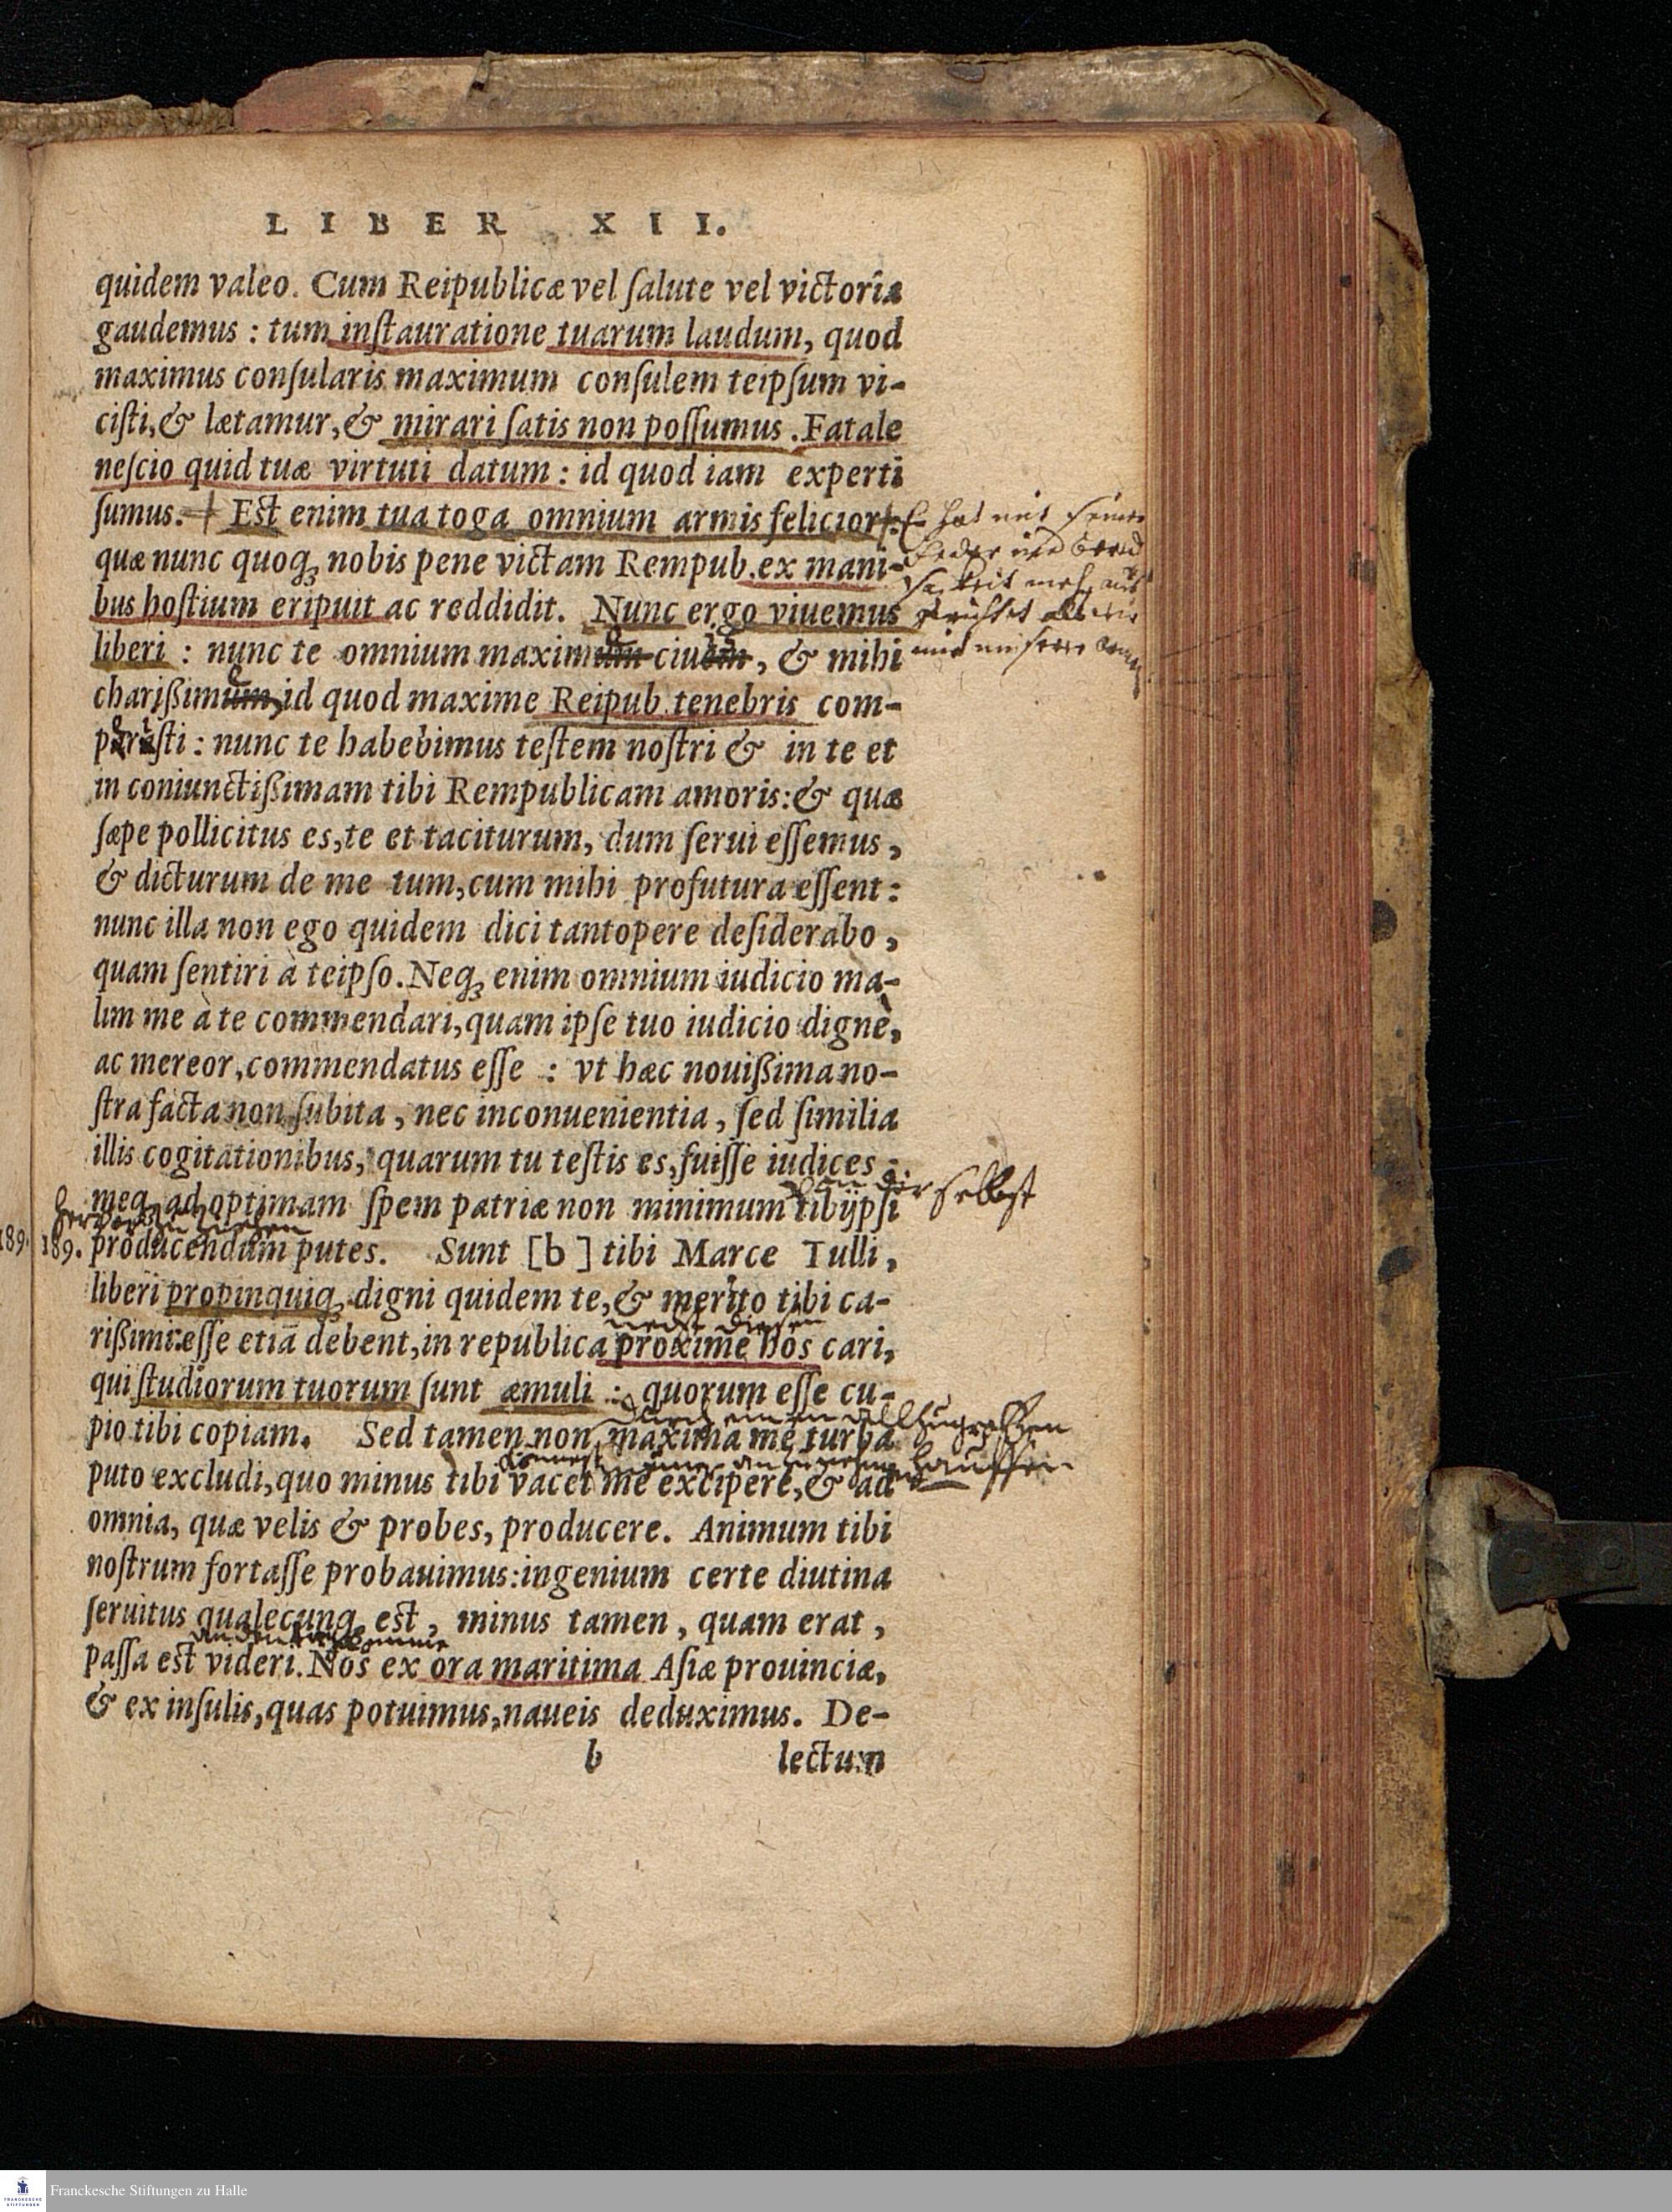 LIBER XII.
quidem valeo. Cum Reipublicæ vel ſalute vel victoria
gaudemus : tum inſtauratione tuarum laudum, quod
maximus conſularis maximum conſulem teipſum vi-
ciſti, & lætamur, & mirari ſatis non poſſumus. Fatale
neſcio quid tuæ virtuti datum : id quod iam experti
ſumus. Eſt enim tua toga omnium armis felicior:
quæ nunc quoq; nobis pene victam Rempub. ex mani-
bus hoſtium eripuit ac reddidit. Nunc ergo viuemus
liberi : nunc te omnium maximum ciuem, & mihi
chariſſimum, id quod maxime Reipub. tenebris com-
periſti : nunc te habebimus teſtem noſtri & in te et
in coniunctiſſimam tibi Rempublicam amoris: & quæ
ſæpe pollicitus es, te et taciturum, dum ſerui eſſemus,
& dicturum de me tum, cum mihi profutura eſſent:
nunc illa non ego quidem dici tantopere deſiderabo,
quam ſentiri à teipſo. Neq; enim omnium iudicio ma-
lim me à te commendari, quam ipſe tuo iudicio dignè,
ac mereor, commendatus eſſe : vt hæc nouiſſima no-
ſtra facta non ſubita, nec inconuenientia, ſed ſimilia
illis cogitationibus, quarum tu teſtis es, fuiſſe iudices :
dir selbst
meq; ad optimam ſpem patriæ non minimum tibijpſi
189. 189. producendum putes. Sunt [b] tibi Marce Tulli,
liberi propinquiq; digni quidem te, & merito tibi ca-
riſſimi: eſſe etiā debent, in republica proxime hos cari,
qui ſtudiorum tuorum ſunt æmuli : quorum eſſe cu-
pio tibi copiam. Sed tamen non maxima me turba
puto excludi, quo minus tibi vacet me excipere, & ad
omnia, quæ velis & probes, producere. Animum tibi
noſtrum fortaſſe probauimus: ingenium certe diutina
ſeruitus qualecunq; eſt, minus tamen, quam erat,
paſſa eſt videri. Nos ex ora maritima Aſiæ prouinciæ,
& ex inſulis, quas potuimus, naueis deduximus. De-
b lectum
Franckesche Stiftungen zu Halle